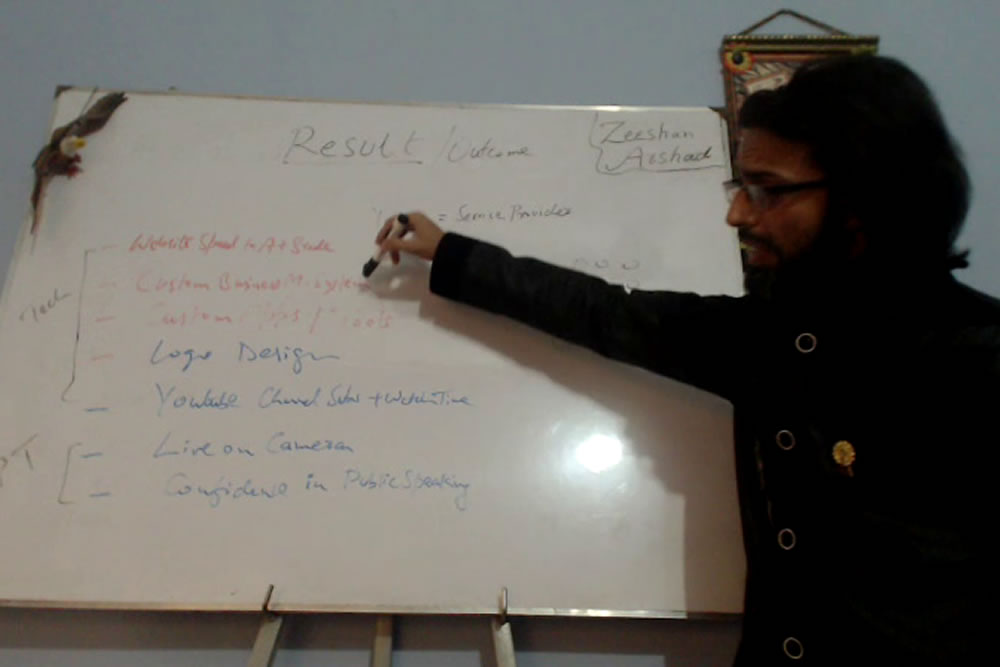 Result / Outcome
Zeeshan
Arshad
= Service Provider
Tech
- Website Speed in A+ Grade
- Custom Business M. System
- Custom Apps / Tools
- Logo Design
- Youtube Channel Subs + WatchTime
- Live on Camera
- Confidence in Public Speaking